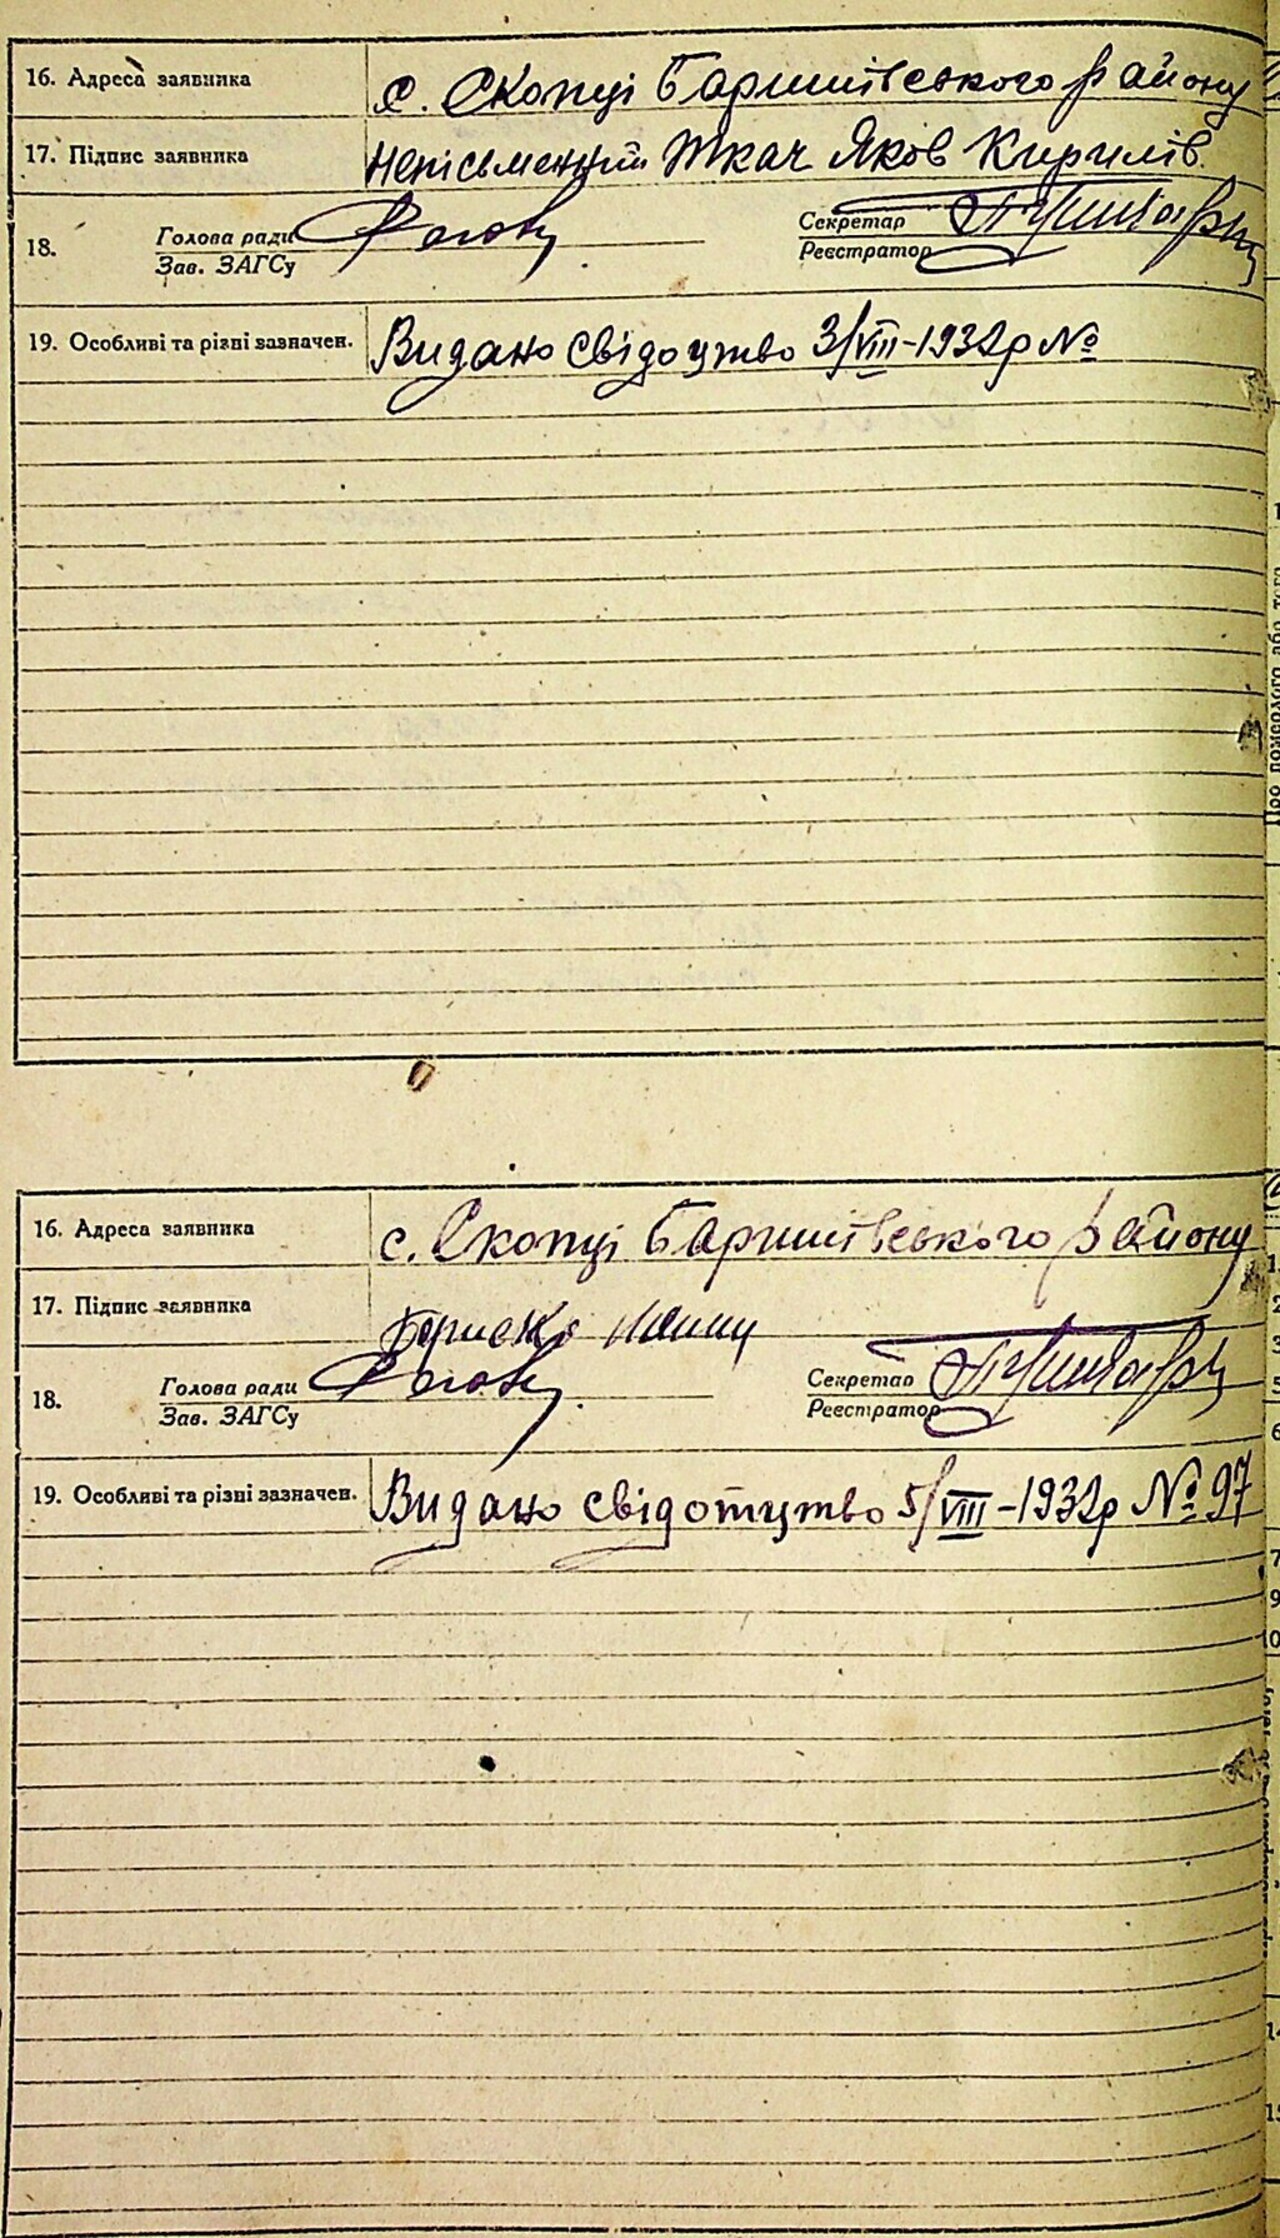 16. Адреса заявника с. Скопці Баришівського району
17. Підпис заявника непісьменний Ткач Яков Кирилів.
18. Голова ради Секретар
Зав. ЗАГСу Реєстратор
19. Особливі та різні зазначен. Видано свідоцтво 3/VIII-1932р №
16. Адреса заявника с. Скопці Баришівського району
17. Підпис заявника
18. Голова ради Секретар
Зав. ЗАГСу Реєстратор
19. Особливі та різні зазначен. Видано свідотцтво 5/VIII-1932р № 97